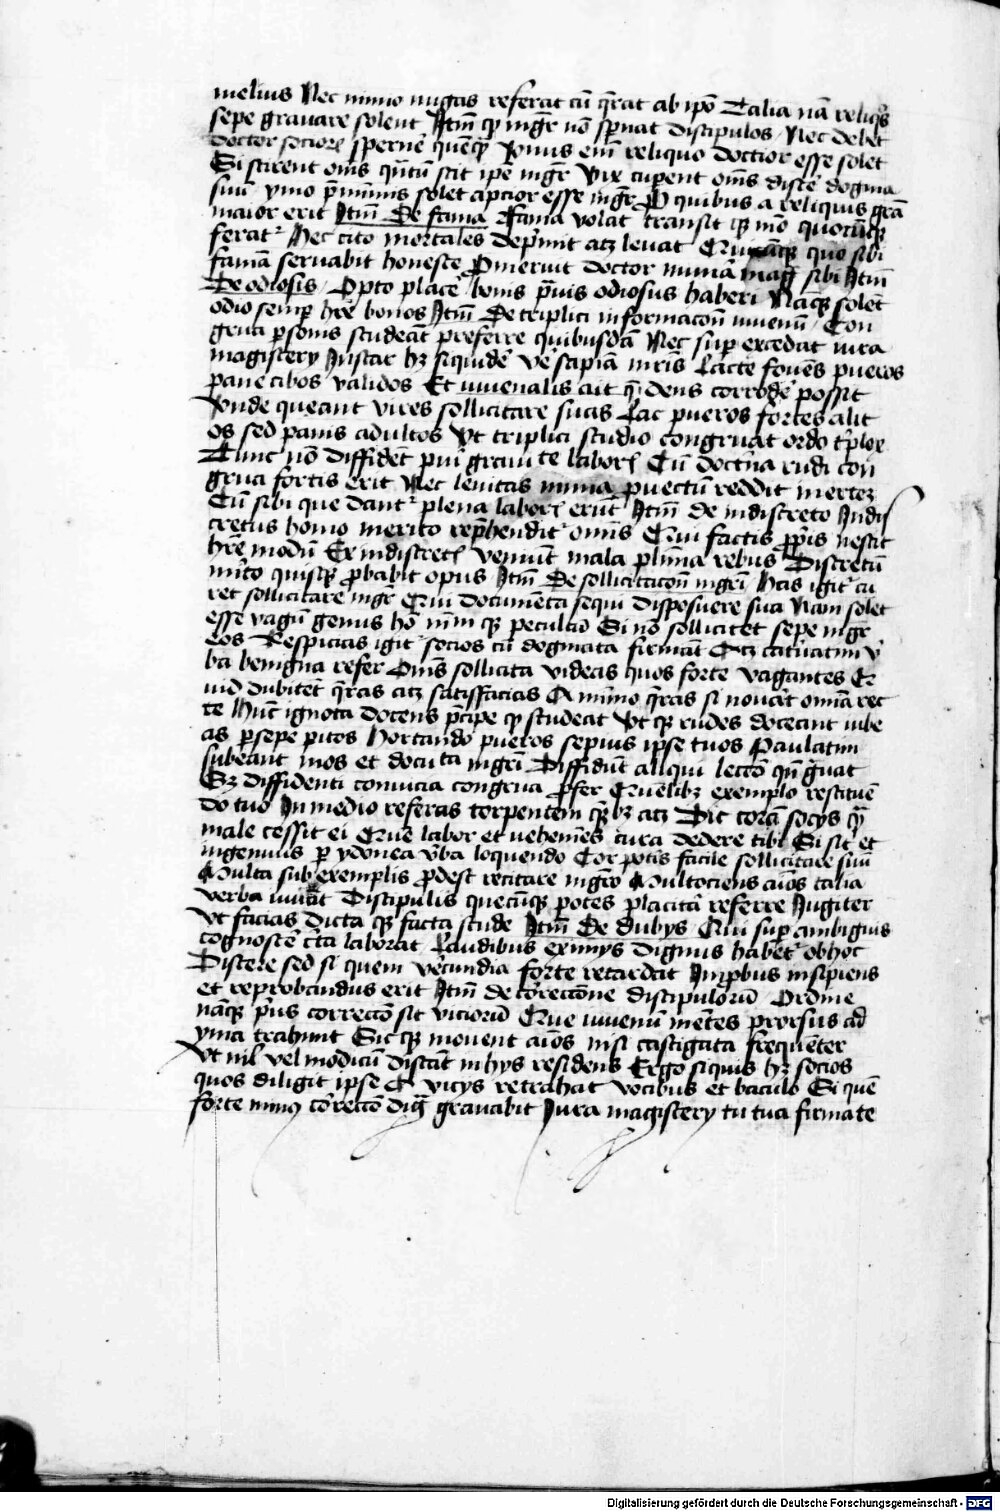 melius Nec nimio nugas referat cū q̄rat ab ip̄o Talia nā reliq̄s
sepe grauare solent Itm̄ qꝫ mgr̄ nō sp̄nat discipulos Nec debet
doctor socior͛ spernē quēq̄ȝ Vnus em̄ reliquo doctior esse solet
Si scirent om̄s qn̄tū scit ip̄e mgr̄ Vix cuperent om̄s discē dogma
suū ymo p̄ minimis solet apcior esse mgr̄ quibus a reliquis grā
maior erit Itm̄ De fama Fama volat transit qꝫ mō quocūqꝫ
ferat͛ Hec cito mortales dep̄mit atqꝫ leuat quo sibi
famā seruabit honeste Promeruit doctor munia sibi Itm̄
De odiosis Opto placē bonis prauis odiosus haberi Nāqꝫ solēt
odio semꝑ hr̄e bonos Itm̄ De triplici informacōn iuuenū Con
grua ꝑsonis studeāt preferre quibusdā Nec suꝑ excedat iura
magistery Instar hꝫ siquidē ve sapiā mr̄is Lacte fouēs pueros
pane cibos validos Et iuuenalis ait qͥ dens corrodē possit
Vnde queant vires sollicitare suas Lac pueros fortes alit
os sed panis adultos Vt triplici studio congruat ordo
Tunc nō diffidet grauite labor͛ Cū doct̄na rudi con
grua fortis erit Nec leuitas nimia ꝓuectū reddit inertē
Cū sibi que dant͛ plena labor͛ erūt Itm̄ de indiscreto Indis
cretus homo merito rep̄hendit͛ om̄is Qui factis ꝓprijs nescit
hr̄e modū Ex indiscret͛ veniūt mala plurīa rebus Discretū
mr̄to quisqꝫ ꝓbabit opus Itm̄ De sollicitacōn mgr̄i Has igit͛ cu
ret sollicitare mgr̄ Qui documēta sequi disposuere sua Nam solet
esse vagū genus hoī nim qꝫ peculcū Si nō sollicitet sepe mgr̄
eos Respicias igit͛ socios cū dogmata firmāt Atqꝫ catūatim v̄
ba benigna refer Om̄s sollicita videas quos forte vagantes Et
dubitēt q̄ras atqꝫ satisfacias A mīmo q̄ras si nouāt om̄ia rec
te Hūc ignota docens p̄cipe qꝫ studeat Vt qꝫ rudes doceant iube
as ꝑsepe ꝑitos Hortando pueros sepius ipse tuos Paulatim
subeant mos et docu ta mgr̄i Diffidūt aliqui leccō qn̄ grauat
Sꝫ diffidenti conuicia congrua ꝓfer Quēlibꝫ exemplo restituē
do tuo In medio referas torpentem Dic corā socijs qꝫ
male cessit ei Que labor et vehemēs cura dedere tibi Si sit et
ingenuus ꝑ ydonea v̄ba loquendo Cor potis facile sollicitare suū
Multa sub exemplis ꝓdest recitare mgr̄o Multociens aīos talia
verba iuuāt Discipulis quecūqꝫ potes placitā referre Iugiter
Vt facias dicta qꝫ facta stude Itm̄ De dubys Qui suꝑ ambiguis
cognoscē c̄ta laborat Laudibus eximijs dignus habēt͛ obhoc
Discere sed si quem v̄ecundia forte retardat Improbus insipiens
et reprobandus erit Itm̄ de correccōne discipulorū Ordine
nāqꝫ prius correccō sit viciorū Que iuuenū mētes prorsus ad
yma trahunt Sic qꝫ mouent aīos nisi castigata frequenter
Vt nil vel modicū discāt in hys residens Ergo siquis hꝫ socios
quos diligit ipse A vicys retrahat vocibus et baculo Si quē
forte minus correccō digna grauabit Iura magistery tu tua firmate